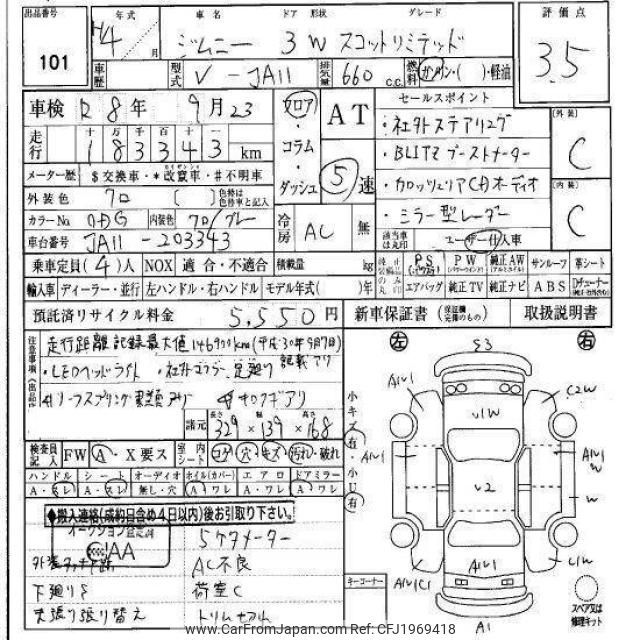 出品番号
101
年式
H4 / 月
車名
ジムニー
ドア 形状
3W
グレード
スコットリミテッド
評価点
3.5
車歴
型式
V-JA11
排気量
660 c.c.
燃料
ガソリン・( )・軽油
車検 R8年 9月23
フロア・コラム・ダッシュ
AT
5速
セールスポイント
・社外ステアリング
・BLITZブーストメーター
・カロッツェリアCDオーディオ
・ミラー型レーダー
[外装]
C
[内装]
C
走行
十 万 千 百 十 一
183343 km
メーター歴 $交換車・*改竄車・#不明車
外装色 クロ ( ) 色替は色替車と記入
カラーNo. 0DG 内装色 クロ/グレー
車台番号 JA11-203343
冷房 AC 無
該当車は丸印 ユーザー・仕入車
乗車定員(4)人 NOX 適合・不適合 積載量 kg
PS PW 純正AW サンルーフ 革シート
エアバッグ 純正TV 純正ナビ ABS
輸入車 ディーラー・並行 左ハンドル・右ハンドル モデル年式( )年
預託済リサイクル料金 5,550円
新車保証書 取扱説明書
注意事項
走行距離記録最大値146900km(平成30年9月7日)
記載アリ
・LEDヘッドライト ・社外マフラー 足廻り
諸元 長さ 329 × 幅 139 × 高さ 168
検査員記入 FW A・X要ス 室内シート コゲ・穴・キズ・汚れ・破れ
ハンドル シート オーディオ ホイル(カバー) エアロ ドアミラー
A・スレ A・スレ 無し・穴 A・ワレ A・ワレ A・ワレ
◆搬入連絡(成約日含め4日以内)後お引取り下さい。
オークション
JAA
5ケタメーター
AC不良
下廻りS
荷室C
天張り張り替え
小キズ 有・小U 有
キーコーナー
左
右
S3
A1U1
U1W
C2W
A1U1
A1U1
W
U2
W
A1U1
U1W
A1U1C1
A1
スペア又は修理キット
www.CarFromJapan.com Ref: CFJ1969418